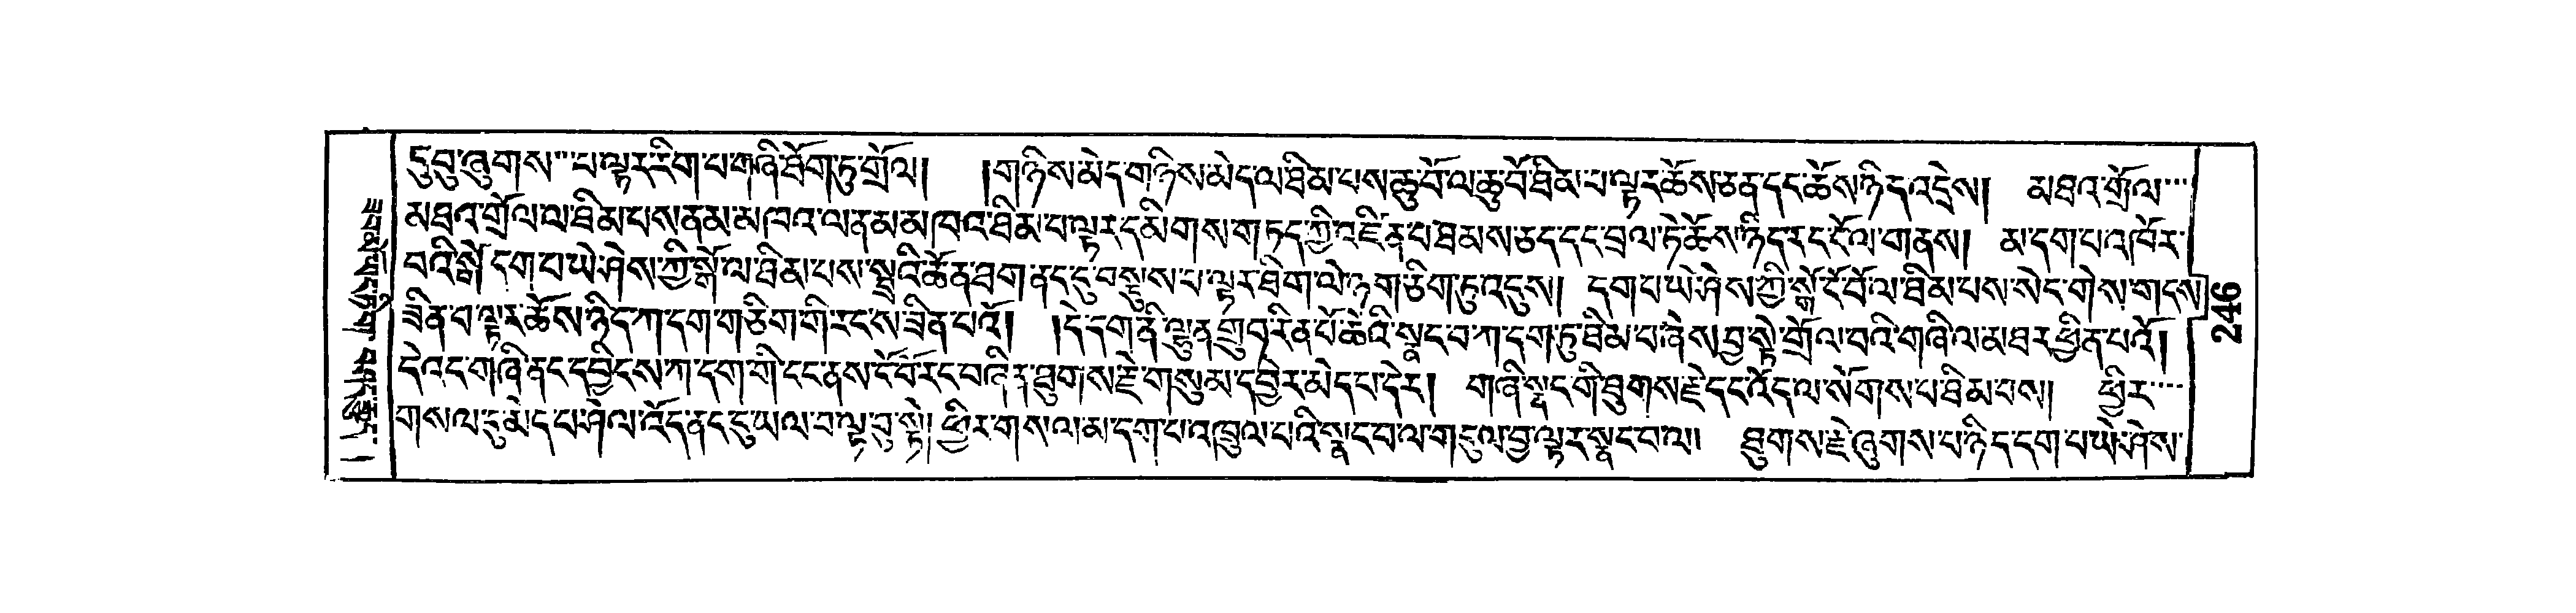 དུ་བུ་ཞུགས་་་པ་ལྟར་རིག་པ་གཞི་ཐོག་ཏུ་གྲོལ། །གཉིས་མེད་གཉིས་མེད་ལ་ཐིམ་པས་ཆུ་བོ་ལ་ཆུ་བོ་ཐིམ་པ་ལྟར་ཆོས་ཅན་དང་ཆོས་ཉིད་འདྲེས། མཐའ་གྲོལ་་་
མཐའ་གྲོལ་ལ་ཐིམ་པས་ནམ་མཁའ་ལ་ནམ་མཁའ་ཐིམ་པ་ལྟར་དམིགས་གཏད་ཀྱི་འཛིན་པ་ཐམས་ཅད་དང་བྲལ་ཏེ་ཆོས་ཉིད་རང་དོལ་གནས། མ་དག་པ་འཁོར་
བའི་སྒོ་དག་པ་ཡེ་ཤེས་ཀྱི་སྒོ་ལ་ཐིམ་པས་སྦྲའི་ཆོན་ཐག་ནང་དུ་བསྡུས་པ་ལྟར་ཐིག་ལེ་ཉག་ཅིག་ཏུ་འདུས། དག་པ་ཡེ་ཤེས་ཀྱི་སྒོ་ངོ་བོ་ལ་ཐིམ་པས་སེང་གེས་གངས་
ཟིན་པ་ལྟར་ཆོས་ཉིད་ཀ་དག་གཅིག་གི་རང་ས་ཟིན་པའོ། །དེ་དག་ནི་ལྷུན་གྲུབ་རིན་པོ་ཆེའི་སྣང་བ་ཀ་དག་ཏུ་ཐིམ་པ་ཞེས་བྱ་སྟེ་གྲོལ་བའི་གཞི་ལ་མཐར་ཕྱིན་པའོ།
དེ་འང་གཞི་ནང་དབྱིངས་ཀ་དག་གི་ངང་ནས་ངོ་བོ་རང་བཞིན་ཐུགས་རྗེ་གསུམ་དབྱེར་མེད་པ་དེར། གཞི་སྣང་གི་ཐུགས་རྗེ་དང་འོད་ལ་སོགས་པ་ཐིམ་པས། ཕྱིར་་་་
གསལ་དུ་མེད་པ་ཤེལ་འོད་ནང་དུ་ཡལ་བ་ལྟ་བུ་སྟེ། ཕྱིར་གསལ་མ་དག་པ་འཁྲུལ་པའི་སྣང་བ་ལ་གདུལ་བྱ་ལྟར་སྣང་བ་ལ། ཐུགས་རྗེ་ཞུགས་པ་ཉིད་དག་པ་ཡེ་ཤེས་